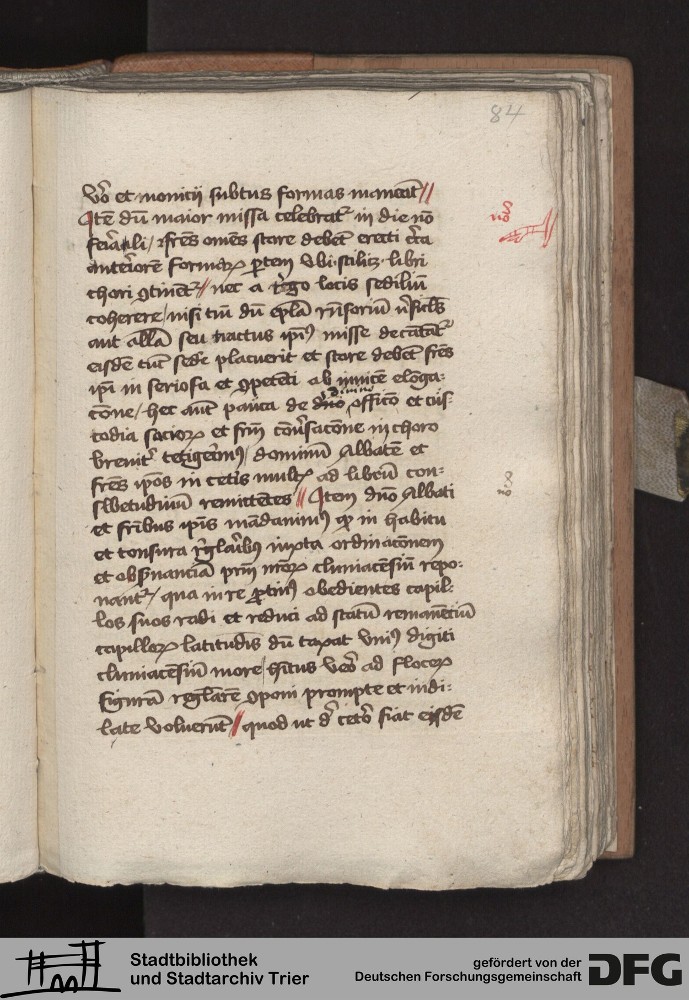 84
v̄o et monicij subtus formas maneāt //
Itē dū maior missa celebrat᷑ in die nō
feriali / fres om̄es stare debēt erecti c̄ca
anteriorē formaꝝ ꝑtem vbi libri
chori ꝯtinēt᷑ // nec a t̄go locis sediliū
coherere / nisi tm̄ dū ep̄la rn̄soriū
aut alla seu tractus ip̄iꝰ misse decātāt᷑
eisdē tūc sede placuerit et stare debēt fres
ip̄i in seriosa et ꝯpetēti ab inuicē elōga-
cone / hec aūt pauca de diuino officō et cus-
todia socioꝝ et frm̄ cōūsacōne in choro
breuit᷑ tetigerimꝰ / dominū Abbatē et
fres ip̄os in cetis multꝭ ad librū con-
swetudinū remittētes // Item dn̄o Abbati
et fribus ip̄is mādamuꝰ qꝫ in habitu
et tonsura iuxta ordinacōnem
et obsuanciā prm̄ nr̄oꝝ cluniacēsiū repo-
nant᷑ / qua in re ꝓtinꝰ obedientes capil-
los suos radi et reduci ad statū remanēciū
capilloꝝ latitudīs dū taxat vniꝰ digiti
cluniacēsiū more / hītus v̄o ad flocoꝝ
figurā reglarē ꝯponi prompte et indi-
late voluerūt // quod ut d̄r cet̄o fiat eisdē
nō
nō
Stadtbibliothek
und Stadtarchiv Trier
gefördert von der
Deutschen Forschungsgemeinschaft
DFG